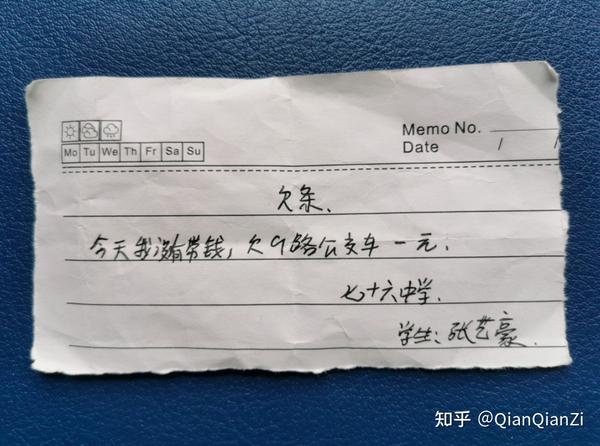 Memo No.
Mo Tu We Th Fr Sa Su
Date / /
欠条、
今天我没有带钱，欠9路公交车一元．
七十六中学．
学生：张艺豪．
知乎 @QianQianZi